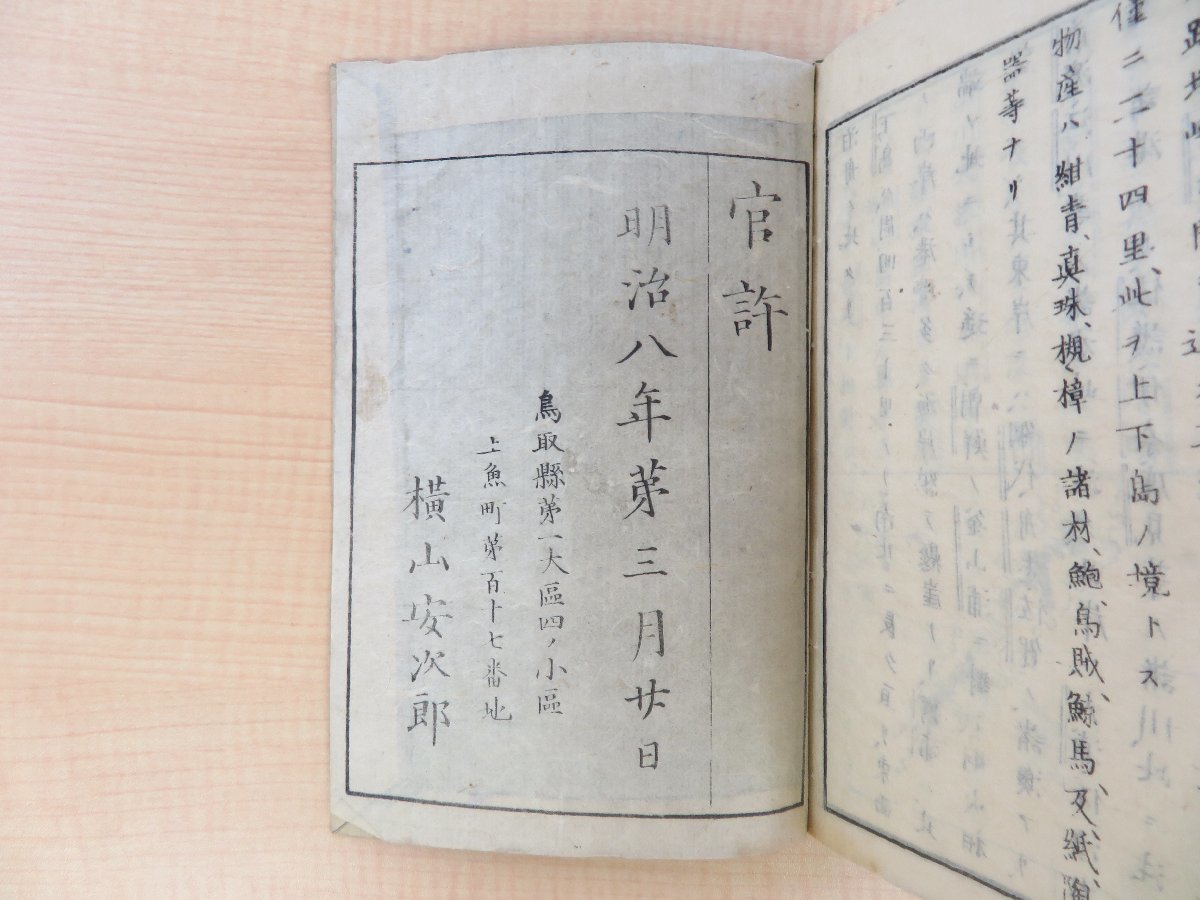 僅ニ二十四里、此ヲ上下島ノ境トス
物産ハ紺青、真珠、槻、樟ノ諸材、鮑、烏賊、鯨、馬、及、紙、陶
器等ナリ
官許
明治八年第三月廿日
鳥取縣第一大區四ノ小區
上魚町第百十七番地
橫山安次郎